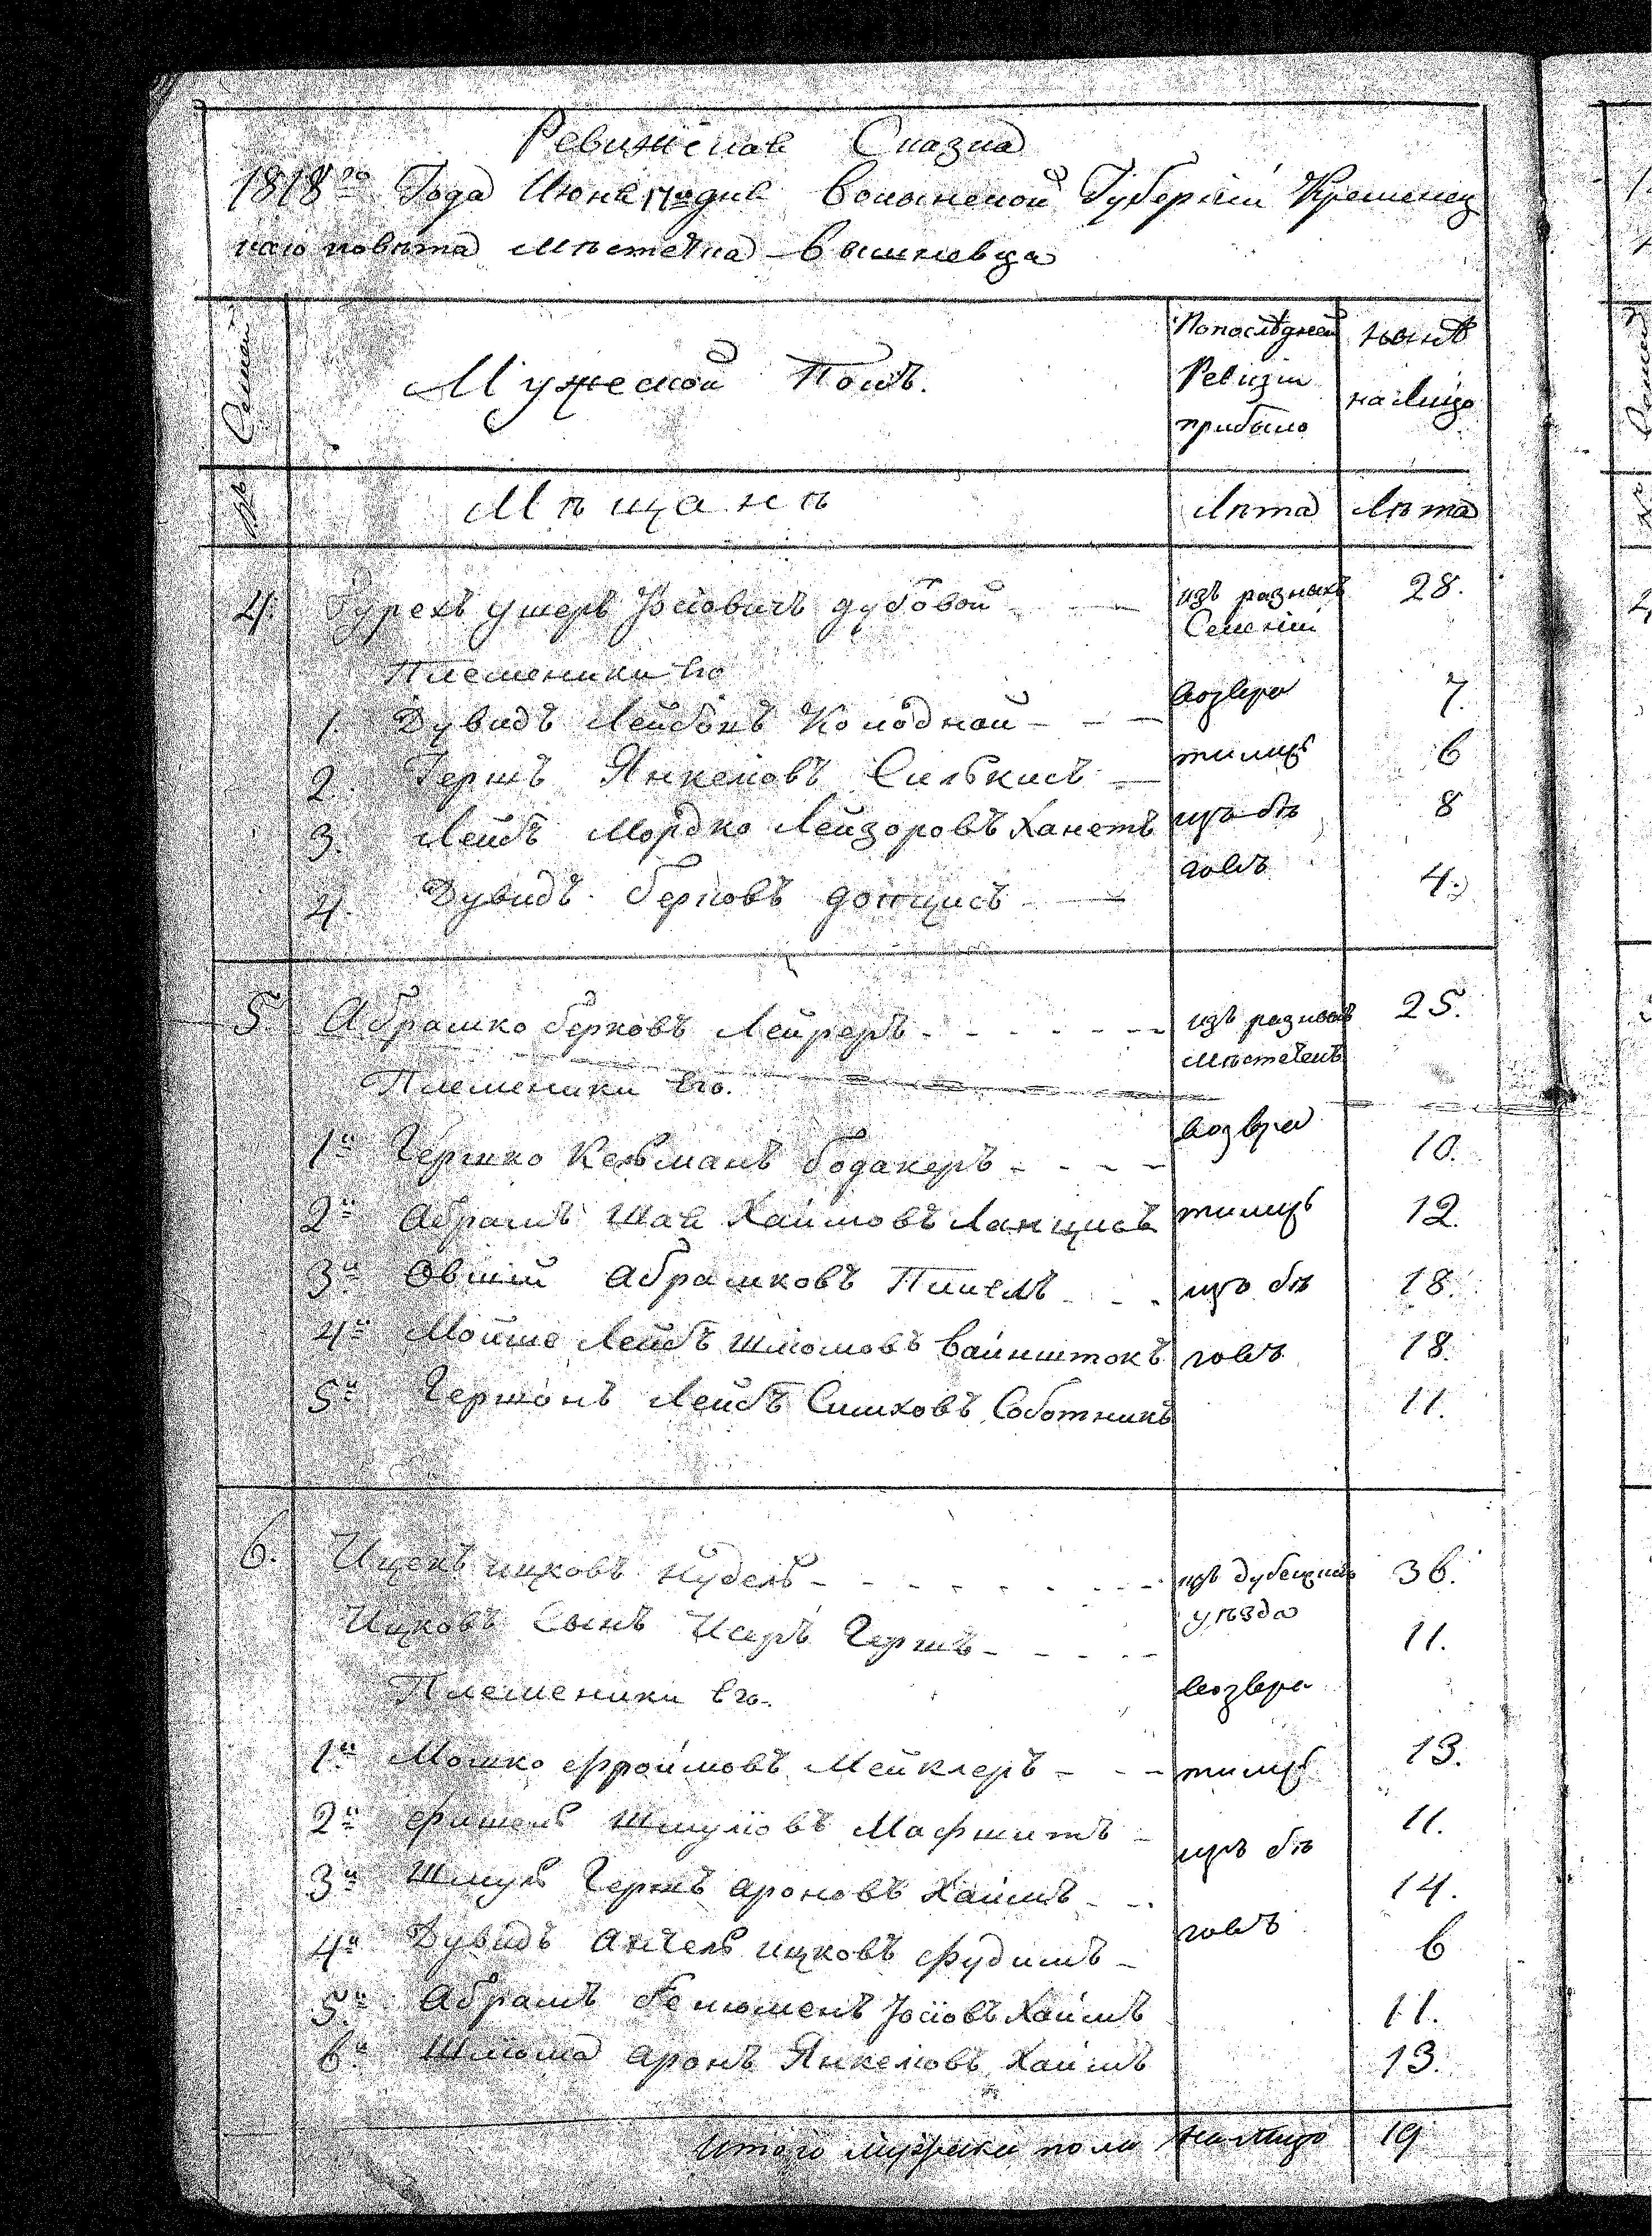 Ревижская Сказка
1818го Года Июня 17го дня Волынской Губернии Кременец
каго повѣта мѣстечка Вишневца
Семей
Мужеской Полъ.
Попослѣдней
Ревизіи
прибыло
нынѣ
на Лицо
№
Мѣщанѣ
Лѣта
Лѣта
4.
Гурехъ Ушеръ Іосіовичъ дубовой
изъ разныхъ
Семеній
28.
Племеники Его
возвра
1. Дувидъ Лейбовъ Колодной
7.
2. Гершъ Янкелювъ Силькисъ
тилиcь
6
3. Лейбъ Мордко Лейзоровъ Ханетъ
изъ бѣ
8
4. Дувидъ Берковъ донцисъ
говъ
4.
5.
Абрашко берковъ Лейреръ
изъ разныхъ
мѣстечекъ
25.
Племеники Его.
возвра
1й Гершко Кельманъ бодакеръ
10.
2й Абрамъ Шая Хаимовъ Ланцисъ
тилиcь
12.
3й Овшій Абрашковъ Пинелъ
изъ бѣ
18.
4й Мойше Лейбъ Шлюмовъ Вайнштокъ
говъ
18.
5й Гершонъ Лейбъ Симховъ Соботникъ
11.
6.
Ицекъ ицковъ Нудель
изъ дубенскаго
уѣзда
36.
Ицковъ Сынъ Исеръ Гершъ
11.
Племеники Его.
возвра
1й Мошко Фроимовъ Мейклеръ
тилиcь
13.
2й Фишель Шмулювъ Мафшитъ
изъ бѣ
11.
3й Шмуль Гершъ ароновъ Хаимъ
14.
4й Дувидъ Анчель ицковъ Фудимъ
говъ
6
5й Абрамъ Бенюменъ Іосіовъ Хаимъ
11.
6й Шлюма аронъ Янкелювъ Хаимъ
13.
Итого мужска пола
на Лицо
19